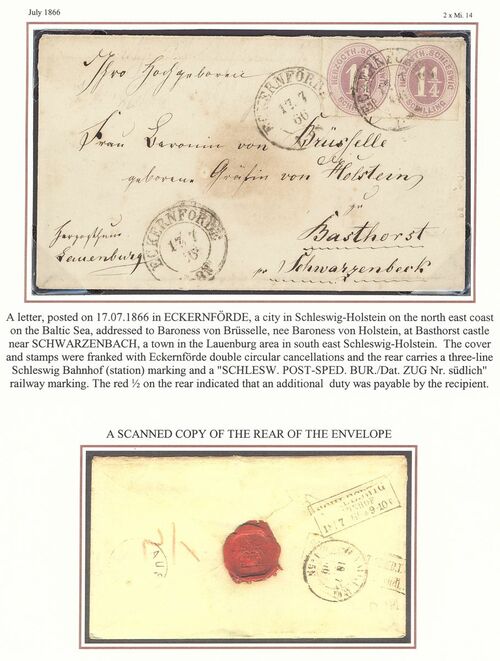 July 1866
2 x Mi. 14
HERZOGTH. SCHLESWIG
1¼
SCHILLING
HERZOGTH. SCHLESWIG
1¼
SCHILLING
ECKERNFÖRDE
17.7
66
Ihro Hochgeboren
Frau Baronin von Brüsselle
geborene Gräfin von Holstein
zu
Basthorst
pr Schwarzenbeck
Herzogthum
Lauenburg
ECKERNFÖRDE
17.7
A letter, posted on 17.07.1866 in ECKERNFÖRDE, a city in Schleswig-Holstein on the north east coast
on the Baltic Sea, addressed to Baroness von Brüsselle, nee Baroness von Holstein, at Basthorst castle
near SCHWARZENBACH, a town in the Lauenburg area in south east Schleswig-Holstein. The cover
and stamps were franked with Eckernförde double circular cancellations and the rear carries a three-line
Schleswig Bahnhof (station) marking and a "SCHLESW. POST-SPED. BUR./Dat. ZUG Nr. südlich"
railway marking. The red ½ on the rear indicated that an additional duty was payable by the recipient.
A SCANNED COPY OF THE REAR OF THE ENVELOPE
SCHLESWIG
BAHNHOF